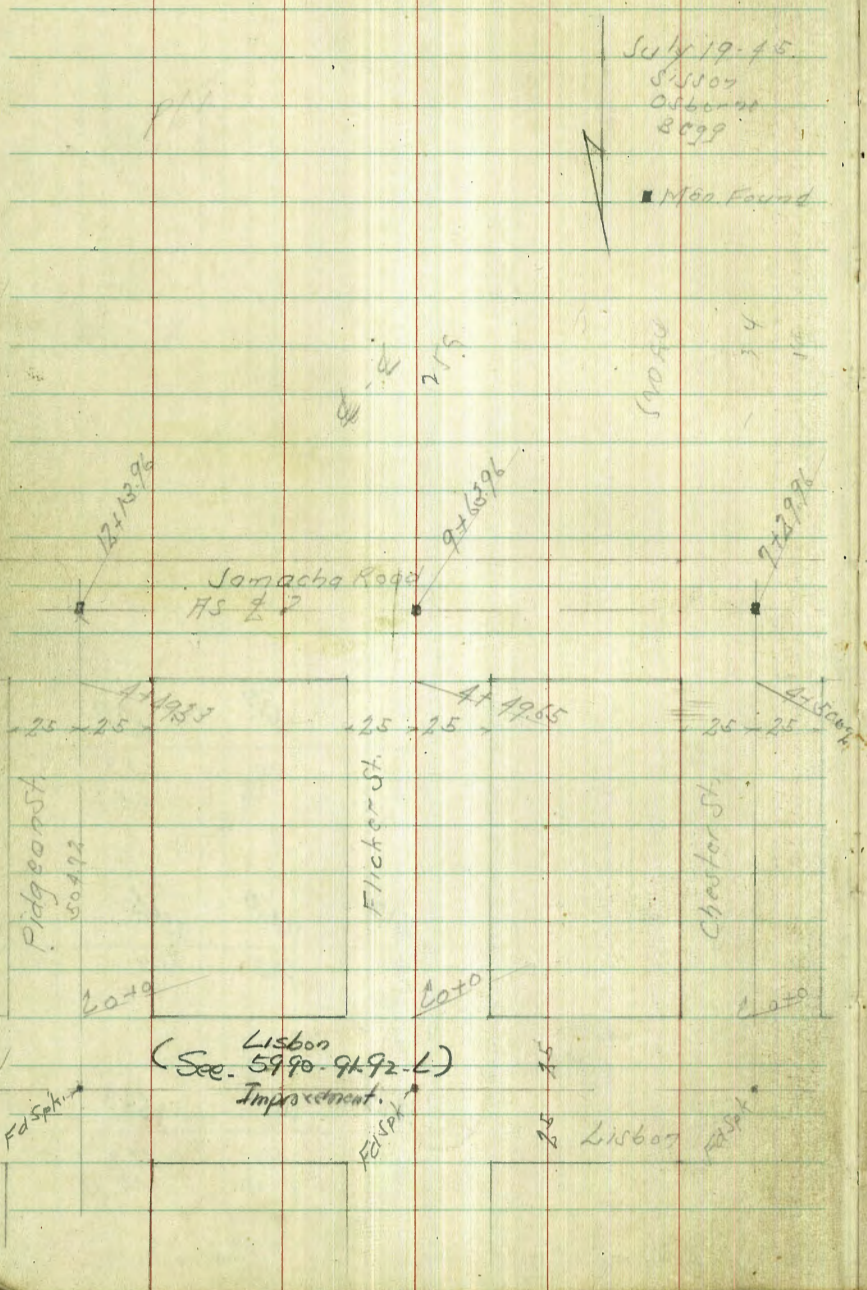 July 19-45.
Sisson
Osborne
Begg
Mon. Found
259
12+13.96
9+63.96
7+29.96
Jamacha Road
4+49.33
4+49.65
25 - 25
25 - 25
25 - 25
Pidgeon St.
50472
Flicker St.
Chester St.
0+0
0+0
0+0
Lisbon
(See. 5990-91-92-L)
Improvement.
Fd Spk.
Fd Spk
Fd Spk
25 25
Lisbon